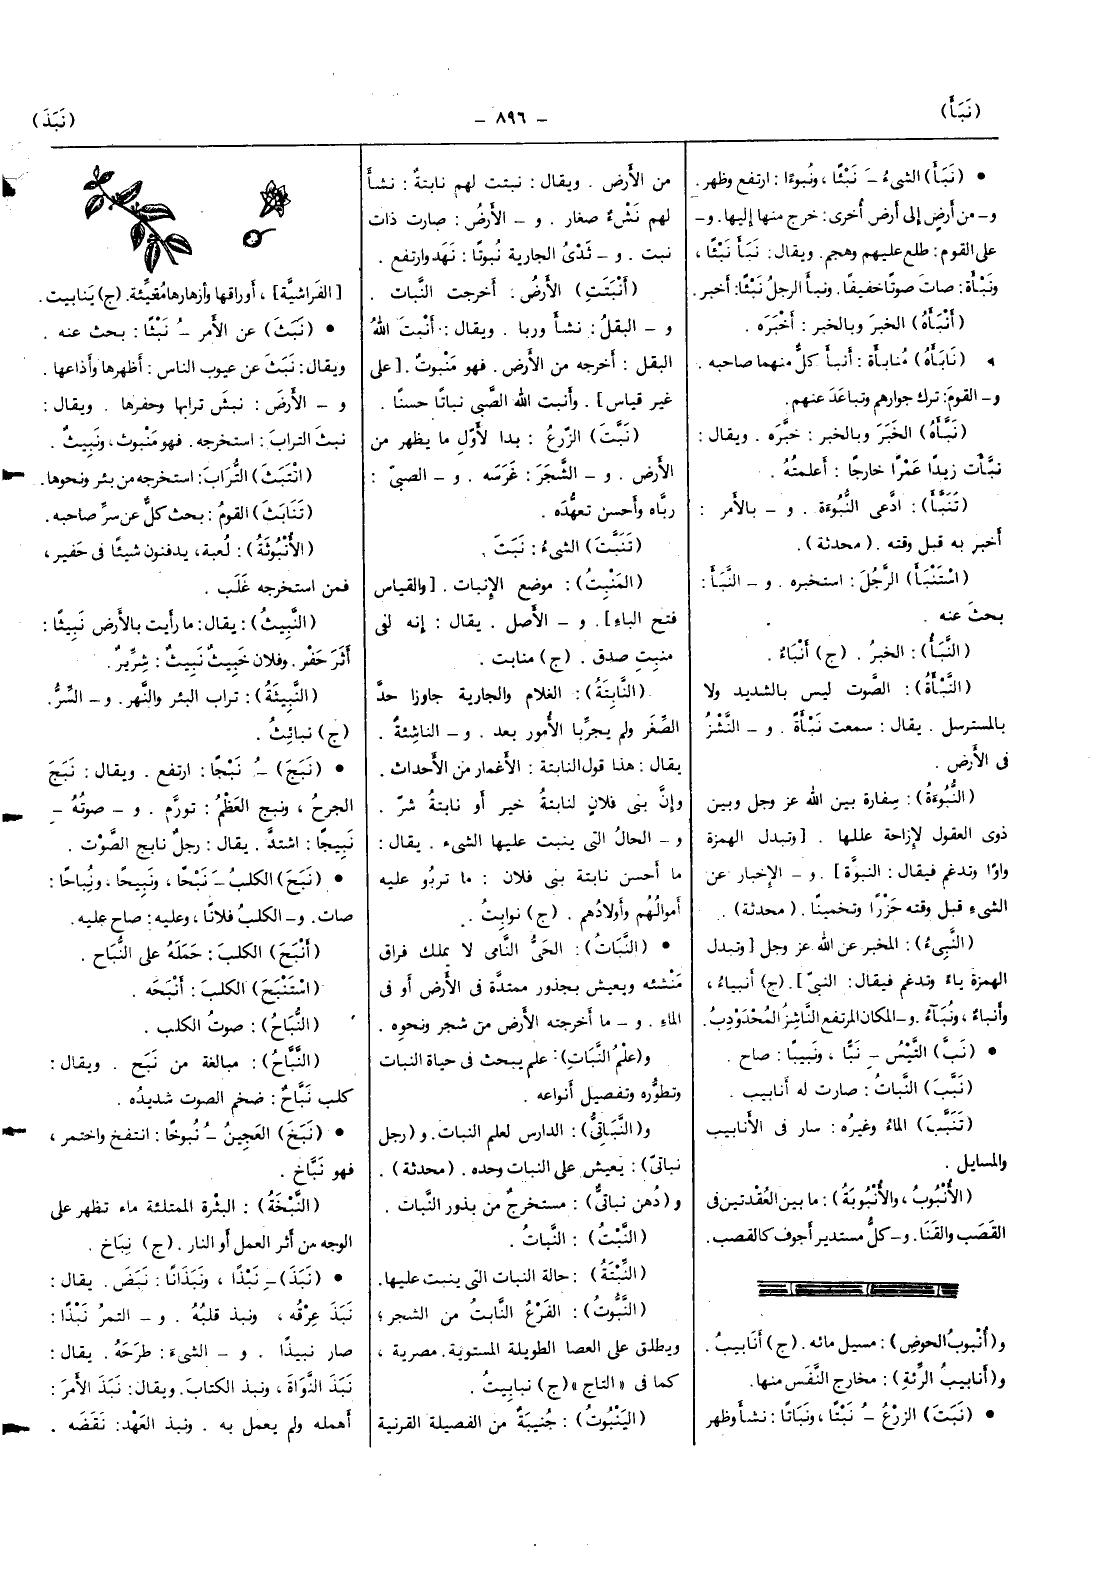 (نَبَأَ)
– ٨٩٦ –
(نَبَذَ)
• (نَبَأَ) الشىءُ – نَبْئًا ، ونُبوءًا : ارتفع وظهر .
و – من أرضٍ إلى أرض أُخرى : خرج منها إليها. و –
على القوم : طلع عليهم وهجم . ويقال : نَبَأَ نَبْئًا ،
ونَبْأة : صاتَ صوتًا خفيفًا . ونبأ الرجلُ نَبْئًا: أخبر .
(أَنْبَأَهُ) الخبرَ وبالخبر : أخْبَرَه .
(نَابَأَهُ) مُنابأة : أنبأ كلٌّ منهما صاحبه .
و – القومَ : ترك جوارهم وتباعَدَ عنهم .
(نَبَّأَهُ) الخَبَرَ وبالخبر : خبَّرَه . ويقال :
نبَّأت زيدًا عَمْرًا خارجًا : أعلمتُهُ .
(تَنَبَّأَ) : ادَّعى النُّبُوءَة . و – بالأَمر :
أخبر به قبل وقته . ( محدثة ) .
(اسْتَنْبَأَ) الرَّجُلَ : استخبره . و – النَّبَأَ :
بحثَ عنه .
(النَّبَأُ) : الخبرُ . (ج) أَنْبَاءٌ .
(النَّبْأَةُ) : الصَّوت ليس بالشديد ولا
بالمسترسل . يقال : سمعت نَبْأَةً . و – النَّشْزُ
فى الأَرض .
(النُّبُوءَةُ) : سِفارة بين الله عز وجل وبين
ذوى العقول لإزاحة عللها . [ وتبدل الهمزة
واوًا وتدغم فيقال : النبوَّة ] . و – الإخبار عن
الشىء قبل وقته حَزْرًا وتخمينًا . ( محدثة ) .
(النَّبِىءُ) : المخبر عن الله عز وجل [ وتبدل
الهمزة ياءً وتدغم فيقال : النبىّ ] . (ج) أنبياءُ ،
وأنباءٌ ، ونُبَآءُ . و – المكان المرتفع النَّاشِزُ المُحْدَوْدِبُ.
• (نَبَّ) التَّيْسُ – نَبًّا ، ونَبيبًا : صاح .
(نَبَّبَ) النَّباتُ : صارت له أنابيب .
(تَنَبَّبَ) الماءُ وغيرُه : سار فى الأنابيب
والمسايل .
(الأُنْبُوبُ ، والأُنْبُوبَةُ) : ما بين العُقْدتين فى
القَصَب والقَنَا. و – كلُّ مستدير أجوف كالقصب .
و(أُنْبوبُ الحوضِ) : مسيل مائه . (ج) أنَابيبُ .
و(أنابيبُ الرِّئةِ) : مخارج النَّفَس منها.
• (نَبَتَ) الزرْعُ –ُ نَبْتًا ، ونَبَاتًا : نشأ وظهر
من الأَرض . ويقال : نبتت لهم نابتةٌ : نشأ
لهم نَشْءٌ صغار . و – الأَرضُ : صارت ذات
نبت . و – ثَدْىُ الجارية نُبوتًا : نَهَد وارتفع .
(أَنْبَتَتِ) الأَرضُ : أخرجت النَّبات .
و – البقلُ : نشأ وربا . ويقال : أنْبتَ اللهُ
البقل : أخرجه من الأَرض . فهو مَنْبوتٌ . [ على
غير قياس ] . وأنبت الله الصَّبى نباتًا حسنًا .
(نَبَّتَ) الزّرعُ : بدا لأَوّل ما يظهر من
الأَرض . و – الشَّجَرَ : غَرَسَه . و – الصبىّ :
ربَّاه وأحسن تعهُّدَه .
(تَنَبَّتَ) الشىءُ : نَبَتَ .
(المَنْبِتُ) : موضع الإنبات . [ والقياس
فتح الباء ] . و – الأَصل . يقال : إنه لفى
منبِتِ صدق . (ج) منابت .
(النَّابِتَةُ) : الغلام والجارية جاوزا حدَّ
الصِّغَر ولم يجرِّبا الأُمور بعد . و – الناشِئةُ .
يقال : هذا قول النابتة : الأَغمار من الأَحداث .
وإنَّ بنى فلانٍ لنابتةُ خير أو نابتةُ شرّ .
و – الحالُ التى ينبت عليها الشىء . يقال :
ما أحسن نابتة بنى فلان : ما تربُو عليه
أموالُهم وأولادُهم . (ج) نوابِتُ .
• (النَّبَاتُ) : الحَىُّ النَّامى لا يملك فراق
مَنْشئه ويعيش بجذور ممتدَّة فى الأَرض أو فى
الماء . و – ما أخرجته الأَرض من شجر ونحوه .
و(علْمُ النَّبَاتِ) : علم يبحث فى حياة النبات
وتطوُّره وتفصيل أنواعه .
و(النَّبَاتِىُّ) : الدارس لعلم النبات. و (رجل
نباتىّ) : يعيش على النبات وحده . ( محدثة ) .
و (دُهن نباتىٌّ) : مستخرجٌ من بذور النَّبات .
(النَّبْتُ) : النَّباتُ .
(النِّبْتَةُ) : حالة النبات التى ينبت عليها.
(النَّبُّوتُ) : الفَرْعُ النَّابتُ من الشجر ؛
ويطلق على العصا الطويلة المستوية. مصرية ،
كما فى « التاج » (ج) نبابيتُ .
(اليَنْبُوتُ) : جُنيبةٌ من الفصيلة القرنية
[ الفَراشيَّة ] ، أوراقها وأزهارها مُقيِّئة. (ج) يَنابيت .
• (نَبَثَ) عن الأَمر –ُ نَبْثًا : بحث عنه .
ويقال : نَبَثَ عن عيوب الناس : أظهرها وأذاعها .
و – الأَرضَ : نبش ترابها وحفرها . ويقال :
نبثَ الترابَ : استخرجه . فهو مَنْبوث ، ونَبِيثٌ .
(انْتَبَثَ) التُّرابَ : استخرجه من بئر ونحوها.
(تَنَابَثَ) القومُ : بحث كلٌّ عن سرِّ صاحبه .
(الأُنْبُوثَةُ) : لُعبة ، يدفنون شيئًا فى حَفير ،
فمن استخرجه غَلَب .
(النَّبِيثُ) : يقال : ما رأيت بالأَرض نَبِيثًا :
أثَرَ حَفْر . وفلان خَبيثٌ نَبِيثٌ : شِرِّيرٌ .
(النَّبِيثَةُ) : تراب البئر والنَّهر . و – السِّرُّ .
(ج) نبائِثُ .
• (نَبَجَ) –ُ نَبْجًا : ارتفع . ويقال : نَبَجَ
الجرحُ ، ونبج العَظْمُ : تورَّم . و – صوتُهُ –
نَبيجًا : اشتدَّ . يقال : رجلٌ نابج الصَّوْت .
• (نَبَحَ) الكلبُ – نَبْحًا ، ونَبِيحًا ، ونُباحًا :
صات . و – الكلبُ فلانًا ، وعليه : صاح عليه .
(أَنْبَحَ) الكلبَ : حَمَلَهُ على النُّباح .
(اسْتَنْبَحَ) الكلبَ : أَنْبَحَه .
(النُّبَاحُ) : صوتُ الكلب .
(النَّبَّاحُ) : مبالغة من نَبَح . ويقال :
كلب نَبَّاحٌ : ضخم الصوت شديدُه .
• (نَبَخَ) العَجِينُ –ُ نُبوخًا : انتفخ واختمر ،
فهو نَبَّاخ .
(النَّبْخَةُ) : البثْرة الممتلئة ماء تظهر على
الوجه من أثر العمل أو النار . (ج) نِبَاخ .
• (نَبَذَ) – نَبْذًا ، ونَبَذَانًا : نَبَضَ . يقال :
نَبَذَ عِرْقُه ، ونبذ قلبُهُ . و – التمرُ نَبْذًا :
صار نبيذًا . و – الشىءَ : طرَحَهُ . يقال :
نَبَذَ النَّوَاةَ ، ونبذ الكتابَ . ويقال : نَبَذَ الأَمرَ :
أهمله ولم يعمل به . ونبذ العَهْدَ : نَقَضَه .